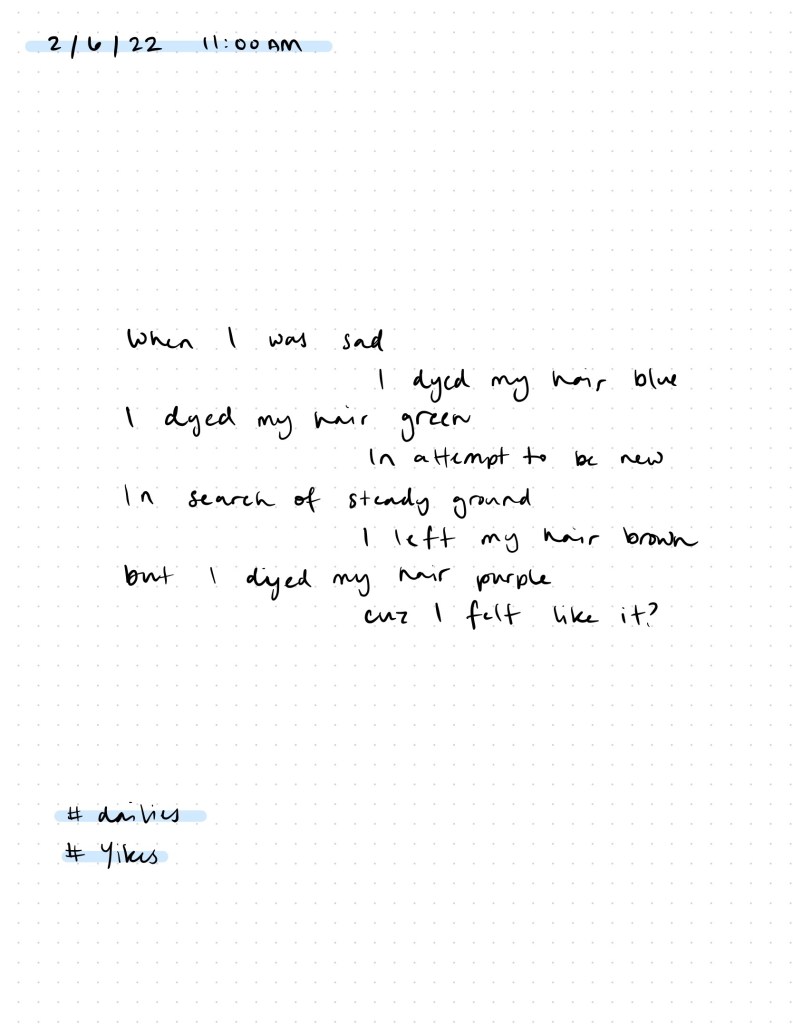 2/6/22 11:00 AM
When I was sad
I dyed my hair blue
I dyed my hair green
In attempt to be new
In search of steady ground
I left my hair brown
but I dyed my hair purple
cuz I felt like it?
# dailies
# Yikes